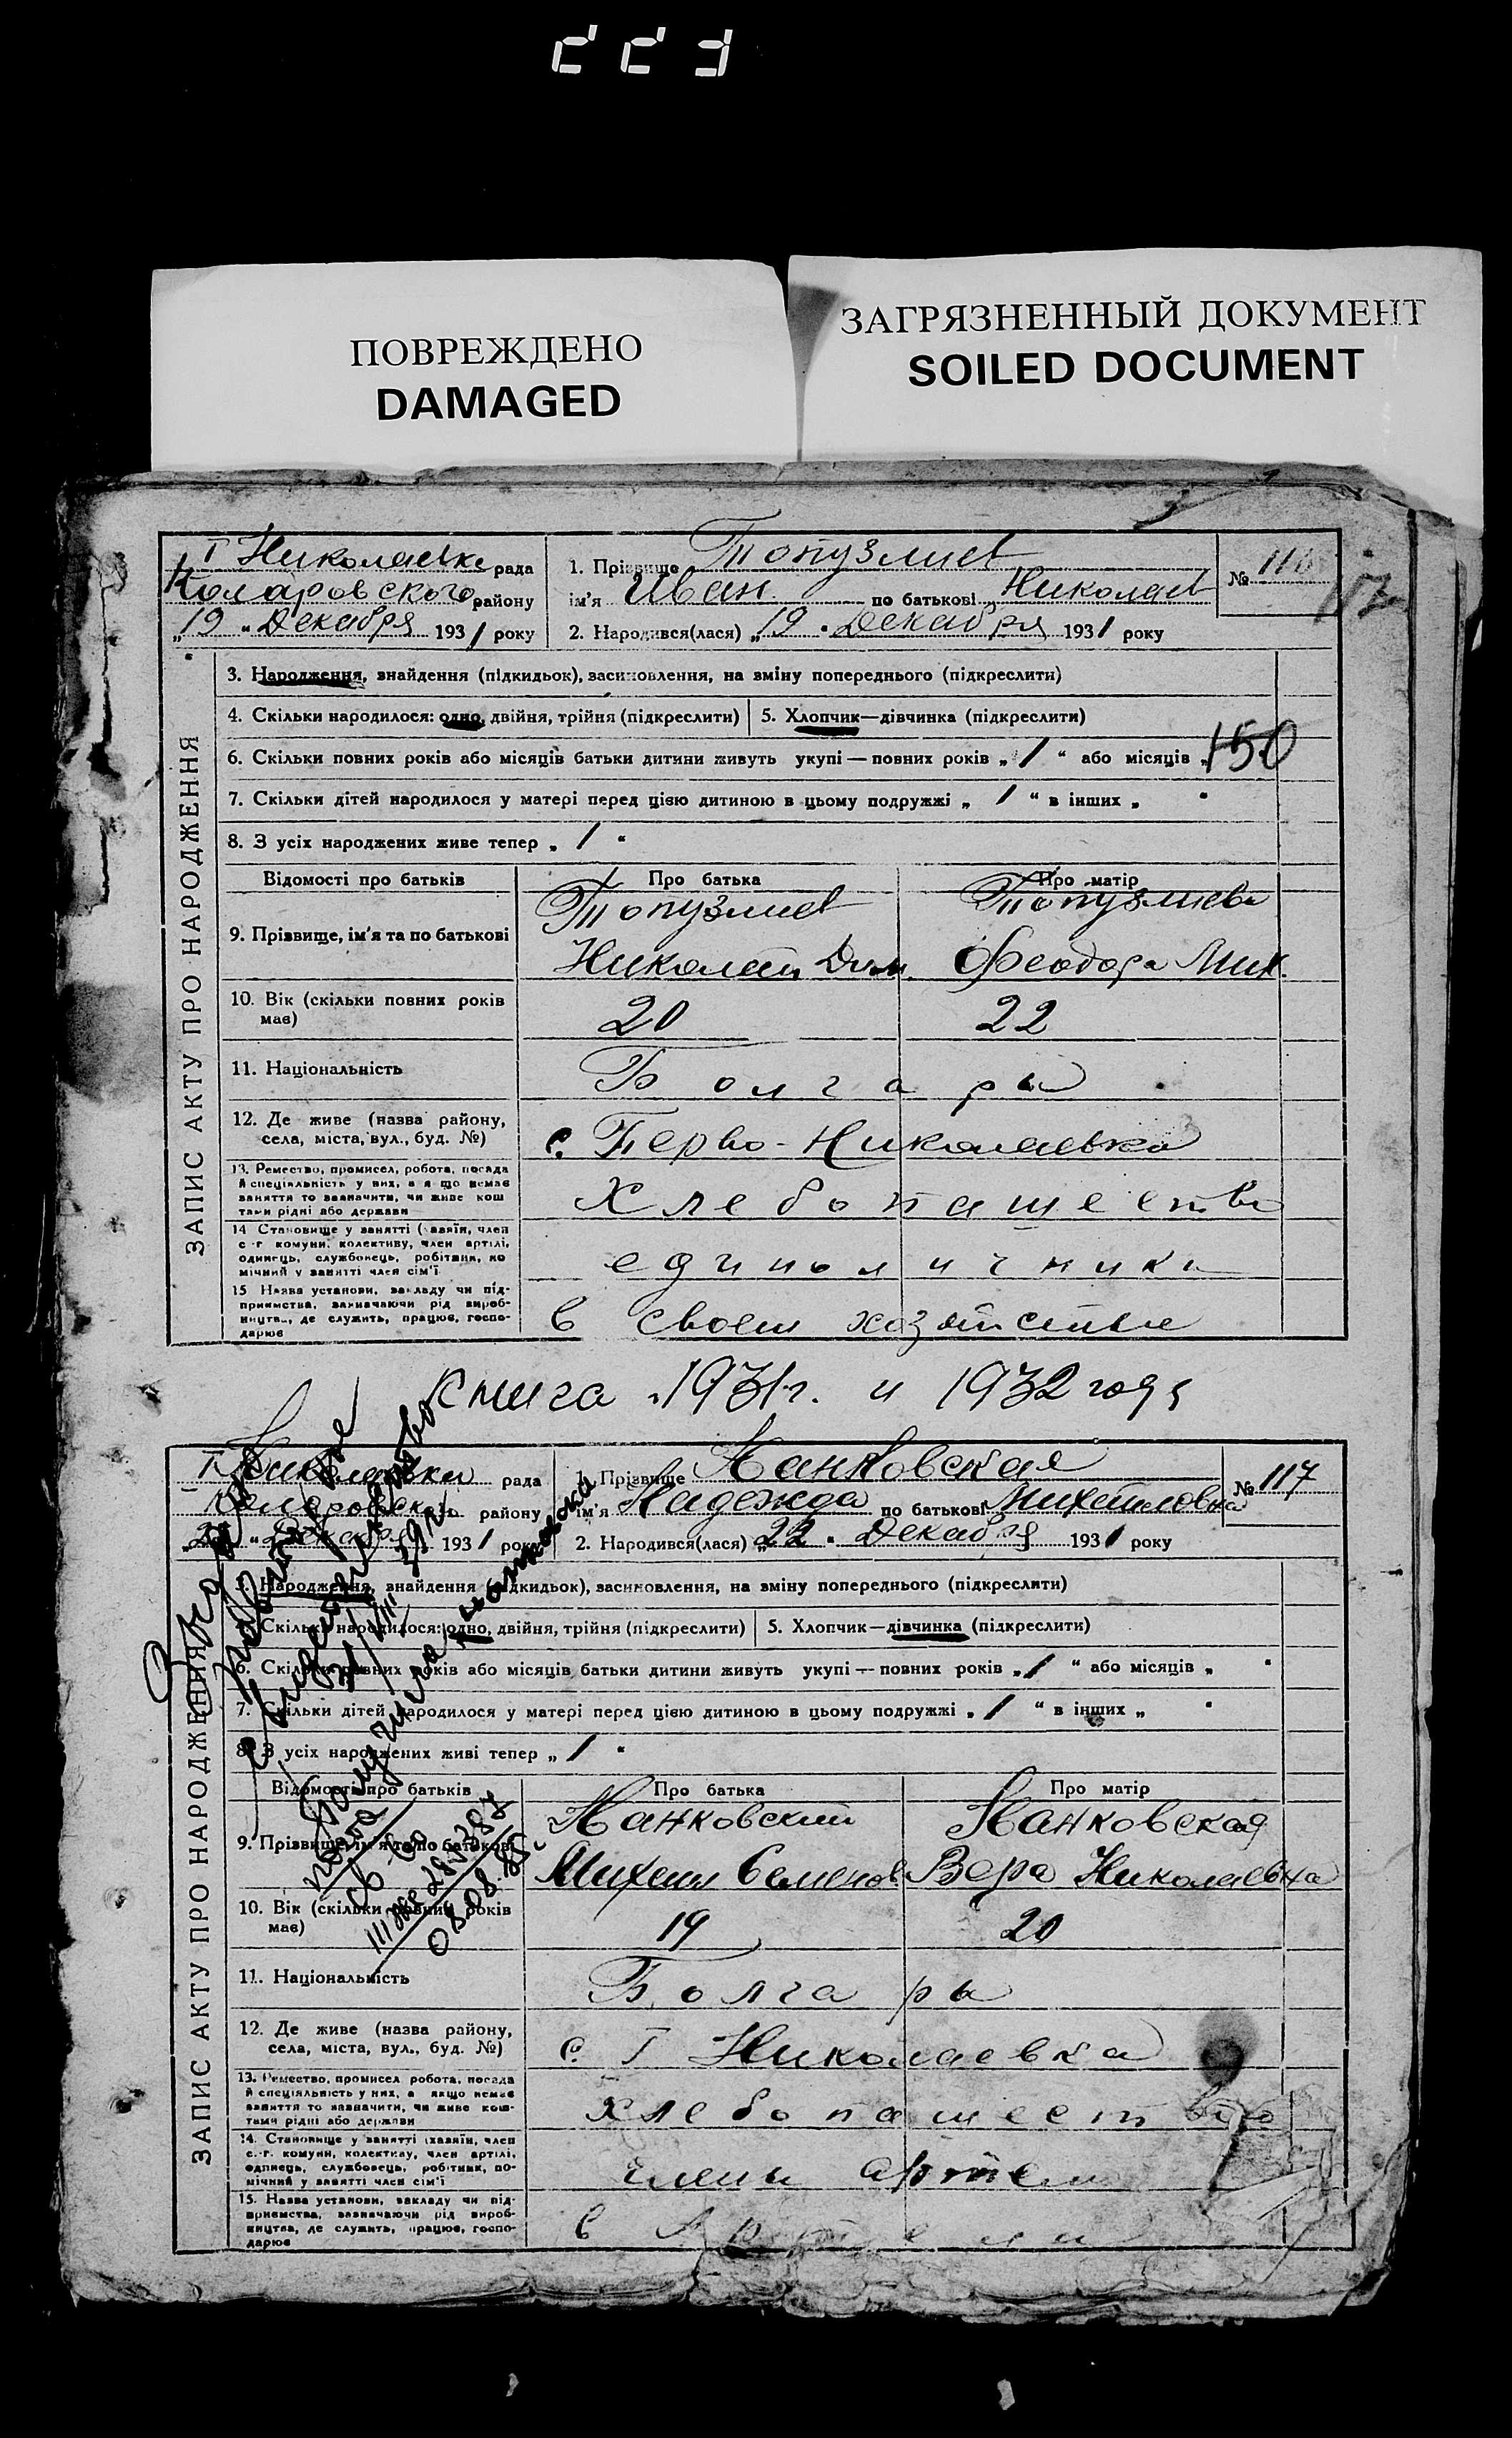 ПОВРЕЖДЕНО
DAMAGED
ЗАГРЯЗНЕННЫЙ ДОКУМЕНТ
SOILED DOCUMENT
І Николаевке рада
Коларовского району
„19 “ Декабря 1931 року
1. Прізвище Топузлиев
ім'я Иван по батькові Николаев
2. Народився(лася) „19 “ Декабря 1931 року
№ 116
ЗАПИС АКТУ ПРО НАРОДЖЕННЯ
3. Народження, знайдення (підкидьок), засиновлення, на зміну попереднього (підкреслити)
4. Скільки народилося: одно, двійня, трійня (підкреслити) 5. Хлопчик—дівчинка (підкреслити)
6. Скільки повних років або місяців батьки дитини живуть укупі — повних років „ 1 “ або місяців „
150
7. Скільки дітей народилося у матері перед цією дитиною в цьому подружжі „ 1 “ в інших „ “
8. З усіх народжених живе тепер „ 1 “
Відомості про батьків Про батька Про матір
9. Прізвище, ім'я та по батькові
Топузлиев Топузлиева
Николай Дим. Феодора Мих.
10. Вік (скільки повних років має) 20 22
11. Національність Болгары
12. Де живе (назва району, села, міста, вул., буд. №) с. Перво-Николаевка
13. Ремество, промисел, робота, посада й спеціяльність у них, а якщо немає заняття то зазначити, чи живе коштами рідні або держави Хлебопашество
14 Становище у занятті (хазяїн, член с.-г. комуни, колективу, член артілі, одинець, службовець, робітник, помічний у занятті член сім'ї единоличники
15 Назва установи, закладу чи підприємства, зазначаючи рід виробництва, де служить, працює, господарює в своем хозяйстве
книга 1931г. и 1932 года
І Николаевка рада
Коларовского району
„22 “ Декабря 1931 року
1. Прізвище Танковская
ім'я Надежда по батькові Михайловна
2. Народився(лася) „22 “ Декабря 1931 року
№ 117
ЗАПИС АКТУ ПРО НАРОДЖЕННЯ
3. Народження, знайдення (підкидьок), засиновлення, на зміну попереднього (підкреслити)
4. Скільки народилося: одно, двійня, трійня (підкреслити) 5. Хлопчик—дівчинка (підкреслити)
6. Скільки повних років або місяців батьки дитини живуть укупі — повних років „ 1 “ або місяців „ “
7. Скільки дітей народилося у матері перед цією дитиною в цьому подружжі „ 1 “ в інших „ “
8. З усіх народжених живі тепер „ 1 “
Відомості про батьків Про батька Про матір
9. Прізвище, ім'я та по батькові
Танковский Танковская
Михаил Семенов Вера Николаевна
10. Вік (скільки повних років має) 19 20
11. Національність Болгары
12. Де живе (назва району, села, міста, вул., буд. №) с. І Николаевка
13. Ремество, промисел, робота, посада й спеціяльність у них, а якщо немає заняття то зазначити, чи живе коштами рідні або держави хлебопашество
14. Становище у занятті (хазяїн, член с.-г. комуни, колективу, член артілі, одинець, службовець, робітник, помічний у занятті член сім'ї) члены артели
15. Назва установи, закладу чи підприємства, зазначаючи рід виробництва, де служить, працює, господарює в Артели
получила
08.08.85